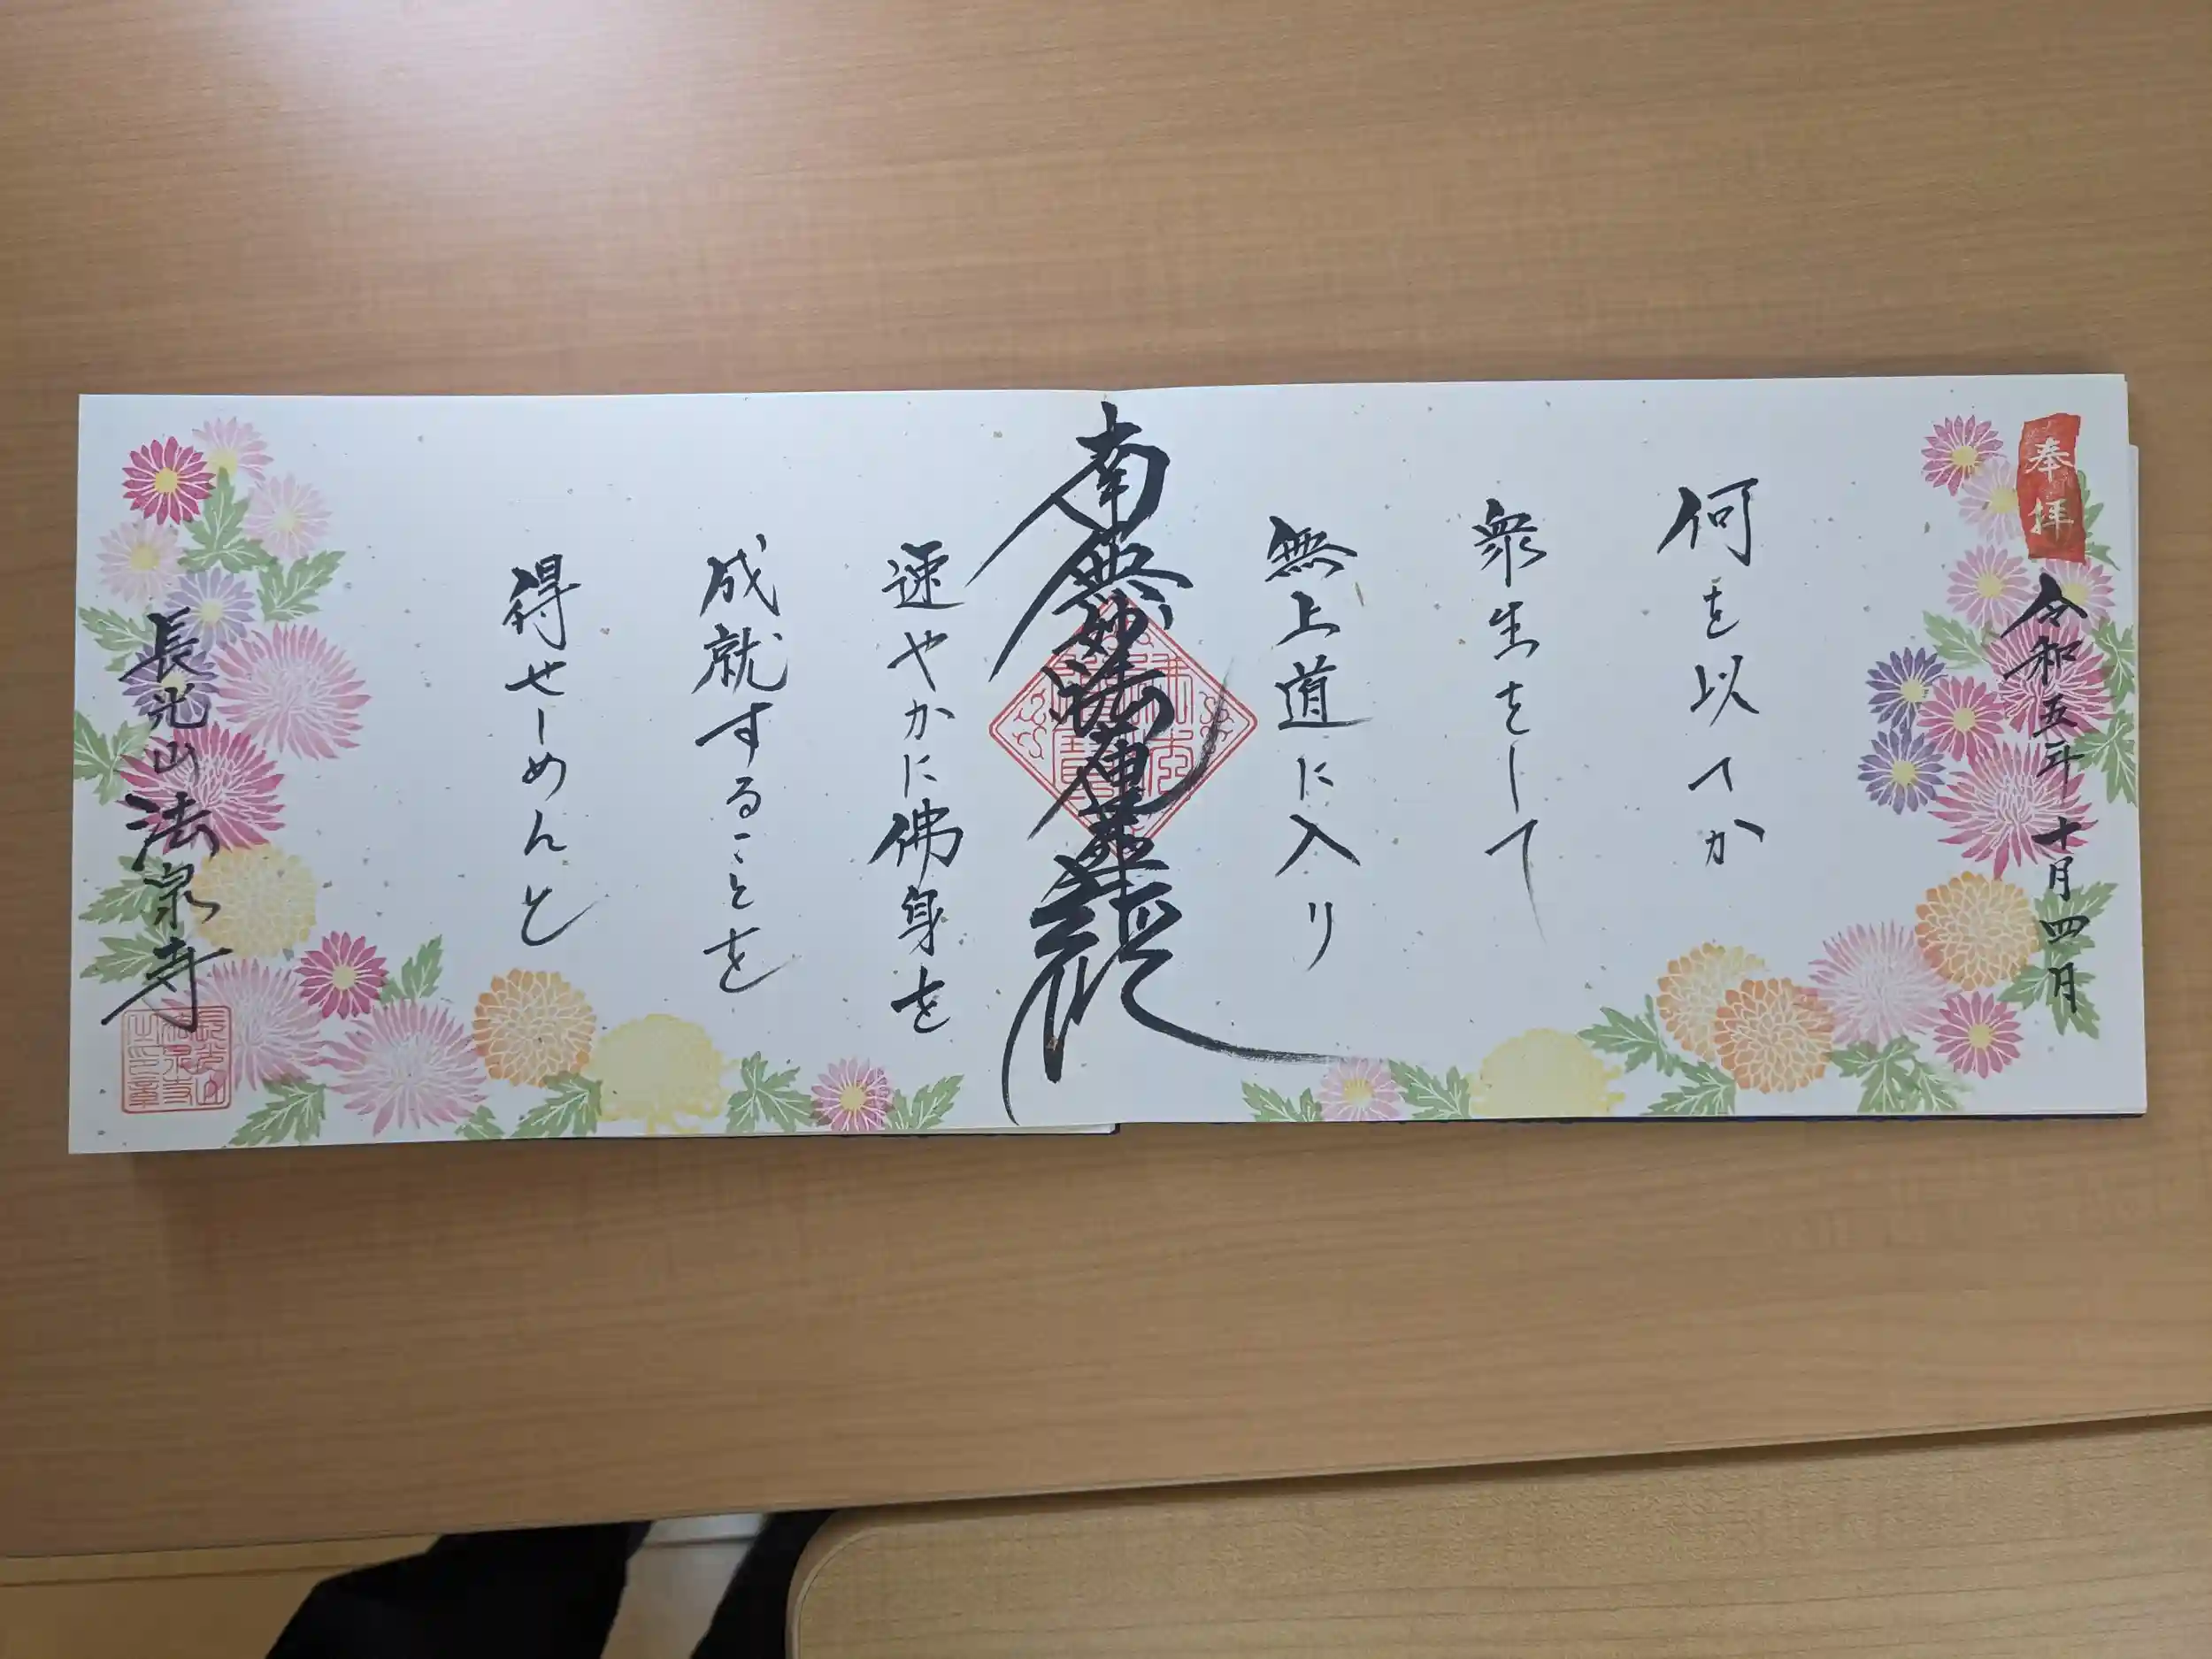 奉拝
令和五年十月四日
何を以てか
衆生をして
無上道に入り
南無妙法蓮華経
速やかに佛身を
成就することを
得せしめんと
長光山 法泉寺
長光山法泉寺之印章